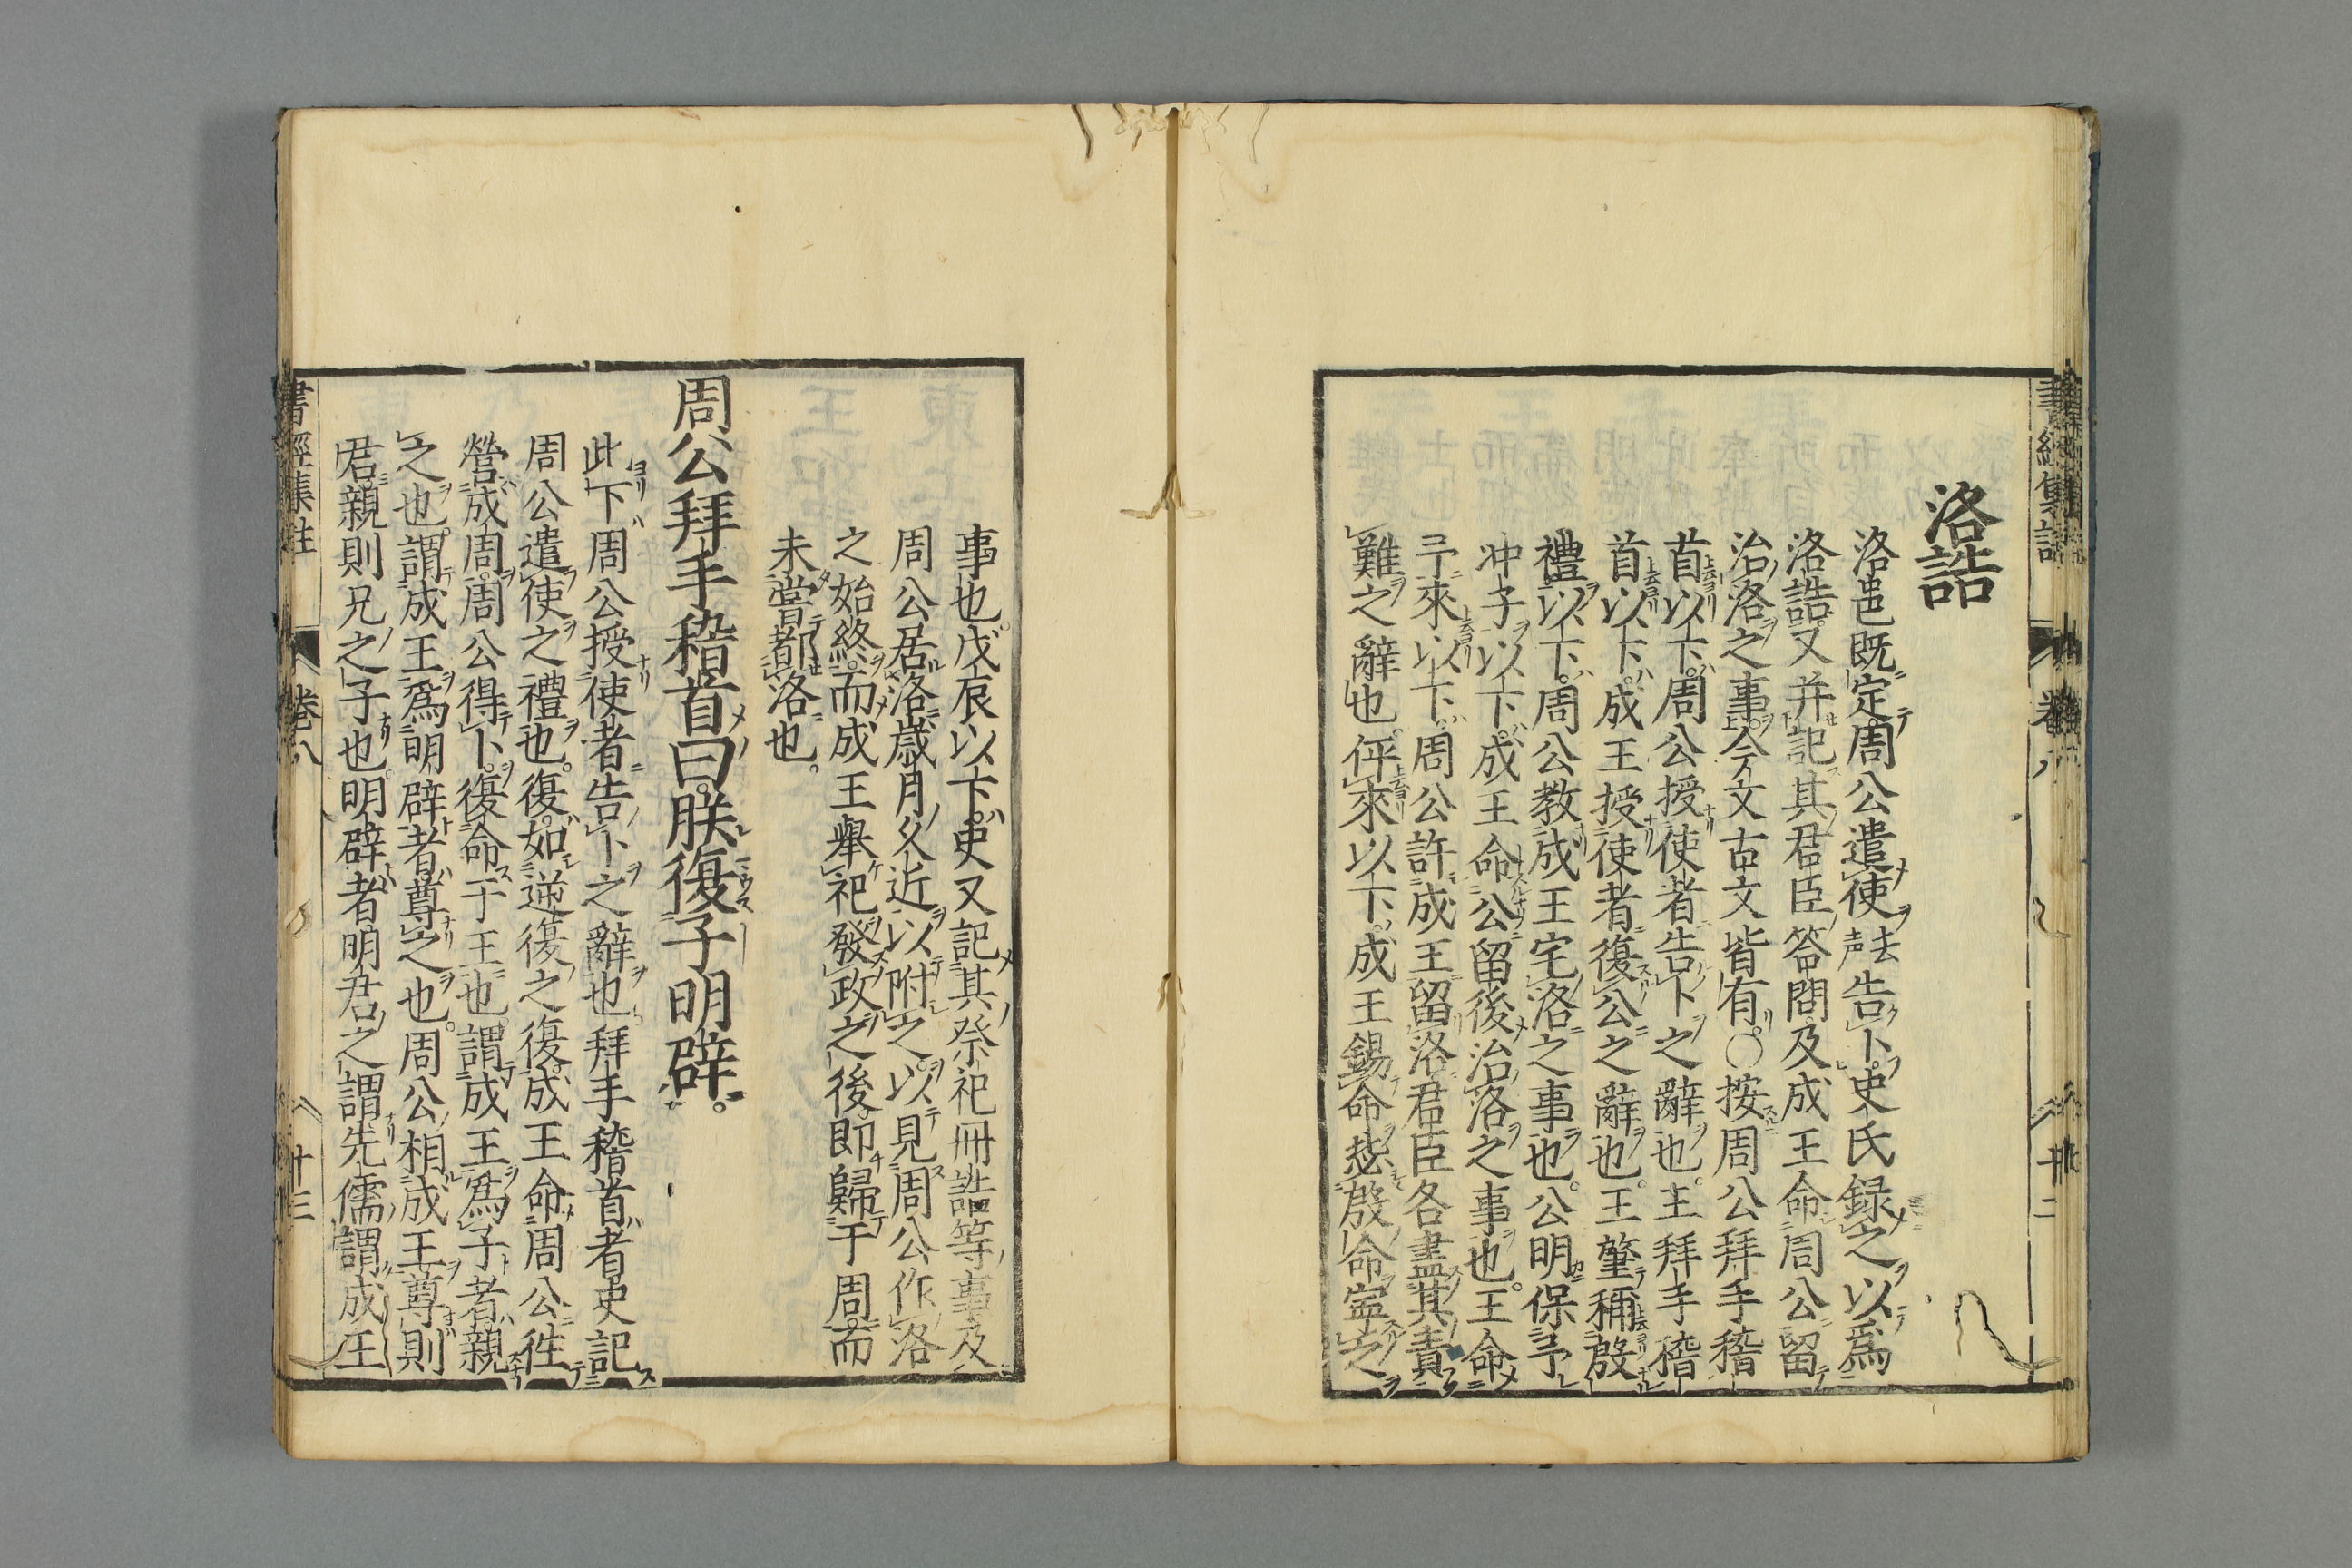 洛誥
洛邑既定周公遣使去声告卜史氏録之以爲
洛誥又并記其君臣答問及成王命周公留
治洛之事今文古文皆有○按周公拜手稽
首以下周公授使者告卜之辭也王拜手稽
首以下成王授使者復公之辭也王肇稱殷
禮以下周公教成王宅洛之事也公明保予
冲子以下成王命公留後治洛之事也王命
予來以下周公許成王留洛君臣各盡其責
難之辭也伻來以下成王錫命毖殷命寧之
事也戊辰以下史又記其祭祀冊誥等事及
周公居洛歲月久近以附之以見周公作洛
之始終而成王舉祀發政之後即歸于周而
未嘗都洛也。
周公拜手稽首曰朕復子明辟。
此下周公授使者告卜之辭也拜手稽首者史記
周公遣使之禮也。復如逆復之復成王命周公徃
營成周周公得卜復命于王也。謂成王爲子者親
之也。謂成王爲明辟者尊之也。周公相成王尊則
君親則兄之子也明辟者明君之謂先儒謂成王
書經集註
卷八
十三